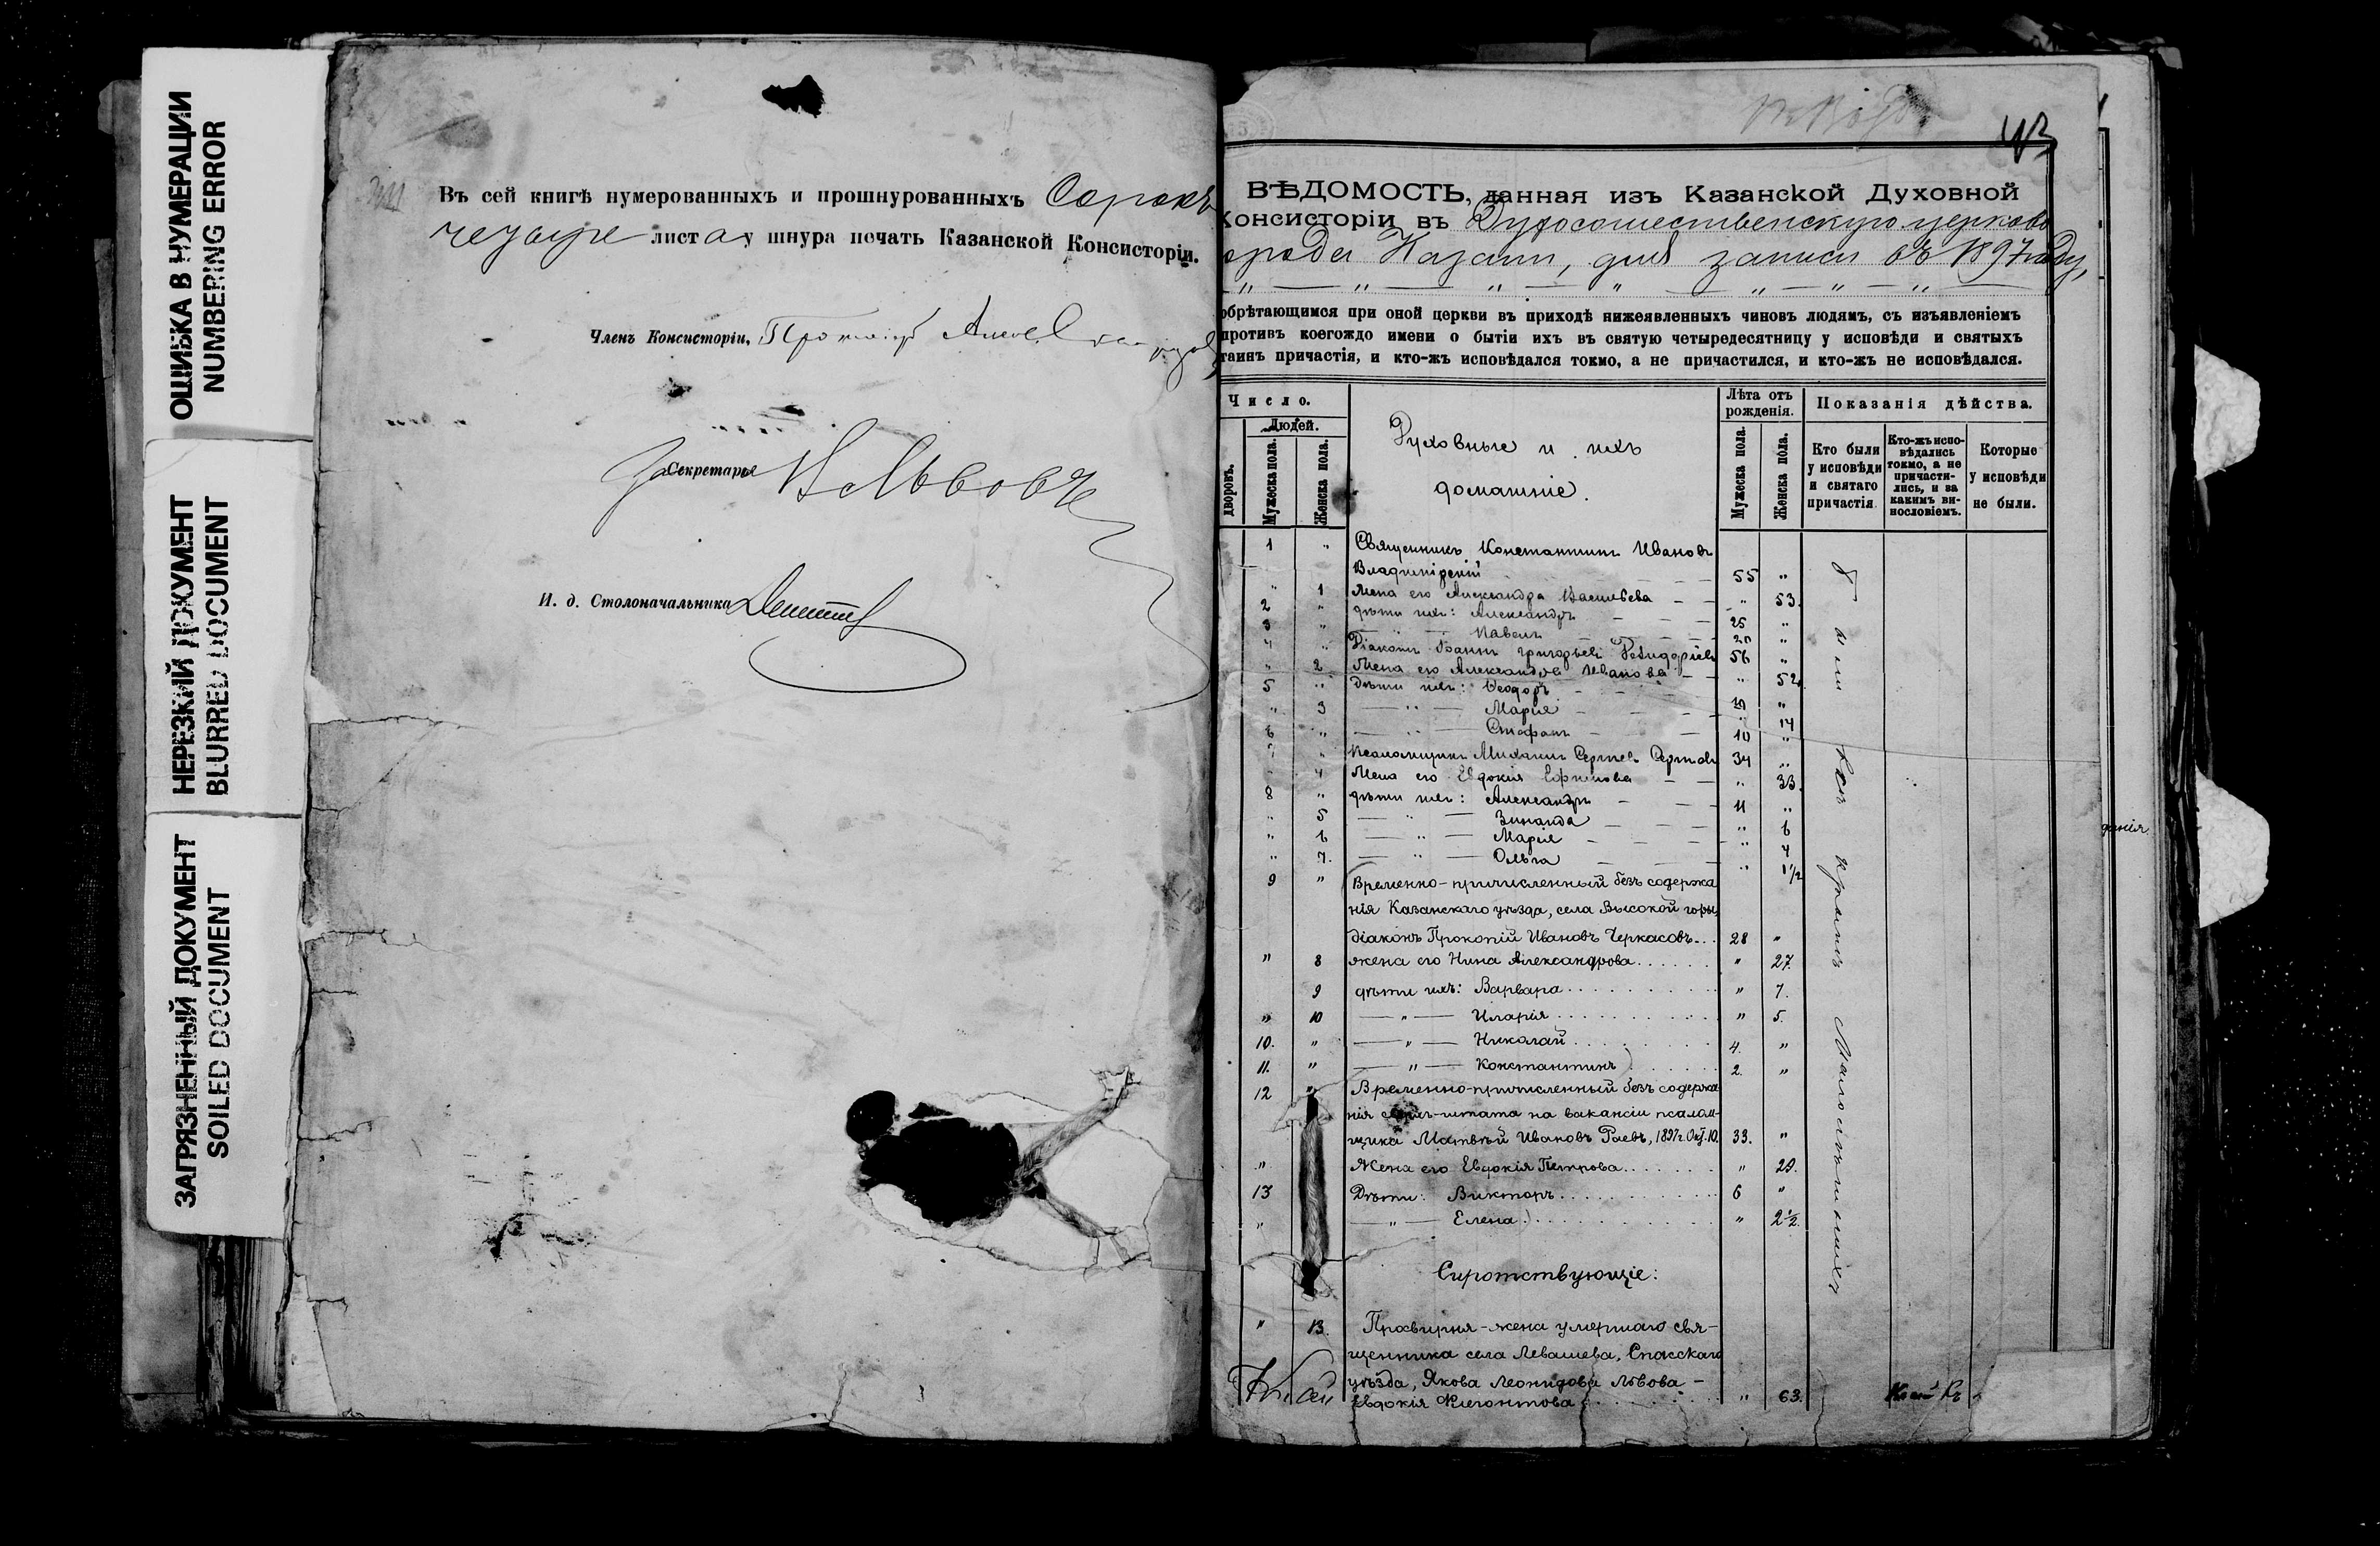 ОШИБКА В НУМЕРАЦИИ
NUMBERING ERROR
НЕРЕЗКИЙ ДОКУМЕНТ
BLURRED DOCUMENT
ЗАГРЯЗНЕННЫЙ ДОКУМЕНТ
SOILED DOCUMENT
Въ сей книгѣ нумерованныхъ и прошнурованныхъ Сорокъ
четыре листа у шнура печать Казанской Консисторіи.
Членъ Консисторіи, 
За Секретаря Н Львовъ
И. д. Столоначальника
ВѢДОМОСТЬ, данная изъ Казанской Духовной
Консисторіи въ Духосошественскую церковь
города Казани, для записи въ 1897 году,
обрѣтающимся при оной церкви въ приходѣ нижеявленныхъ чиновъ людямъ, съ изъявленіемъ
противъ коегождо имени о бытіи ихъ въ святую четыредесятницу у исповѣди и святыхъ
таинъ причастія, и кто-жъ исповѣдался токмо, а не причастился, и кто-жъ не исповѣдался.
Число.
Людей.
дворовъ.
Мужеска пола.
Женска пола.
Духовные и ихъ
домашніе.
Лѣта отъ
рожденія.
Мужеска пола.
Женска пола.
Показанія дѣйства.
Кто были
у исповѣди
и святаго
причастія
Кто-жъ испо-
вѣдались
токмо, а не
причасти-
лись, и за
какимъ ви-
нословіемъ.
Которые
у исповѣди
не были.
1 " Священникъ Константинъ Ивановъ
Владимірскій 55 "
" 1 Жена его Александра Васильева " 53.
2 " дѣти ихъ: Александръ 25 "
3 " Павелъ 20 "
4 " Діаконъ Іоаннъ Григорьевъ 56 "
" 2 Жена его Александра Иванова " 52
5 " Дѣти ихъ: Ѳеодоръ 19 "
" 3 — " — Марія " 14
6 " — " — Стефанъ 10 "
7 " Псаломщикъ Михаилъ Сергѣевъ 34 "
" 4 Жена его Евдокія Ефимова " 33.
8 " дѣти ихъ: Александръ 11 "
" 5 — " — Зинаида " 6
" 6 — " — Марія " 4
" 7. — " — Ольга " 1½
9 " Временно-причисленный безъ содержа
нія Казанскаго уѣзда, села Высокой горы,
діаконъ Прокопій Ивановъ Черкасовъ... 28 "
" 8 жена его Нина Александрова...... " 27.
9 дѣти ихъ: Варвара.......... " 7.
" 10 — " — Иларія.......... " 5.
10. " — " — Николай......... 4. "
11. " — " — Константинъ...... 2. "
12 " Временно-причисленный безъ содержа
нія сверхъ-штата на вакансіи псалом-
щика Матвѣй Ивановъ Раевъ, 1897г. Окт. 10. 33. "
" Жена его Евдокія Петрова....... " 29.
13 Дѣти: Викторъ............ 6 "
" — " — Елена............ " 2½.
Были
всѣ
кромѣ
Малолѣтнихъ
Сиротствующіе:
" 13. Просвирня-жена умершаго свя-
щенника села Левашева, Спасскаго
уѣзда, Якова Леонидова Львова -
Евдокія Флегонтова........ " 63.